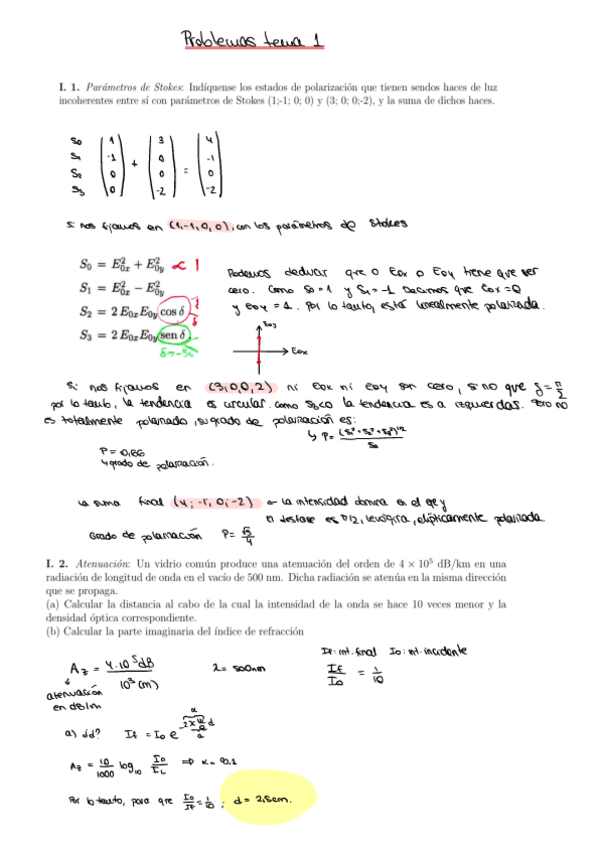 Problemas tema 1
I. 1. Parámetros de Stokes: Indíquense los estados de polarización que tienen sendos haces de luz
incoherentes entre sí con parámetros de Stokes (1;-1; 0; 0) y (3; 0; 0;-2), y la suma de dichos haces.
S0 1 3 4
S1 -1 + 0 = -1
S2 0 0 0
S3 0 -2 -2
Si nos fijamos en (1,-1,0,0), con los parámetros de Stokes
S₀ = E²₀ₓ + E²₀ᵧ < 1
S₁ = E²₀ₓ − E²₀ᵧ
S₂ = 2 E₀ₓE₀ᵧ cos δ
S₃ = 2 E₀ₓE₀ᵧ sen δ
Podemos deducir que o Eox o Eoy tiene que ser
cero. Como S0=1 y S1=-1 Decimos que Eox=0
y Eoy = 1. Por lo tanto, está linealmente polarizada.
Eoy
Eox
Si nos fijamos en (3,0,0,2) ni Eox ni Eoy son cero, si no que δ = π/2
por lo tanto, la tendencia es circular. como S3<0 la tendencia es a izquierdas. Pero no
es totalmente polarizado, su grado de polarización es:
↳ P = (S₁²+S₂²+S₃²)^1/2 / S0
P = 0,66
↳ grado de polarización.
La suma final (4; -1; 0; -2) ← la intensidad domina en el eje y
El desfase es π/2, levógira, elípticamente polarizada.
Grado de polarización P = √5/4
I. 2. Atenuación: Un vidrio común produce una atenuación del orden de 4 × 10⁵ dB/km en una
radiación de longitud de onda en el vacío de 500 nm. Dicha radiación se atenúa en la misma dirección
que se propaga.
(a) Calcular la distancia al cabo de la cual la intensidad de la onda se hace 10 veces menor y la
densidad óptica correspondiente.
(b) Calcular la parte imaginaria del índice de refracción
If: int. final Io: int. incidente
Az = 4·10⁵ dB / 10³ (m) λ = 500nm If/Io = 1/10
atenuación
en dB/m
a) ¿d? If = Io e
Az = 10/1000 log₁₀
Por lo tanto, para que Io/If = 1/10 ; d = 2,5cm.